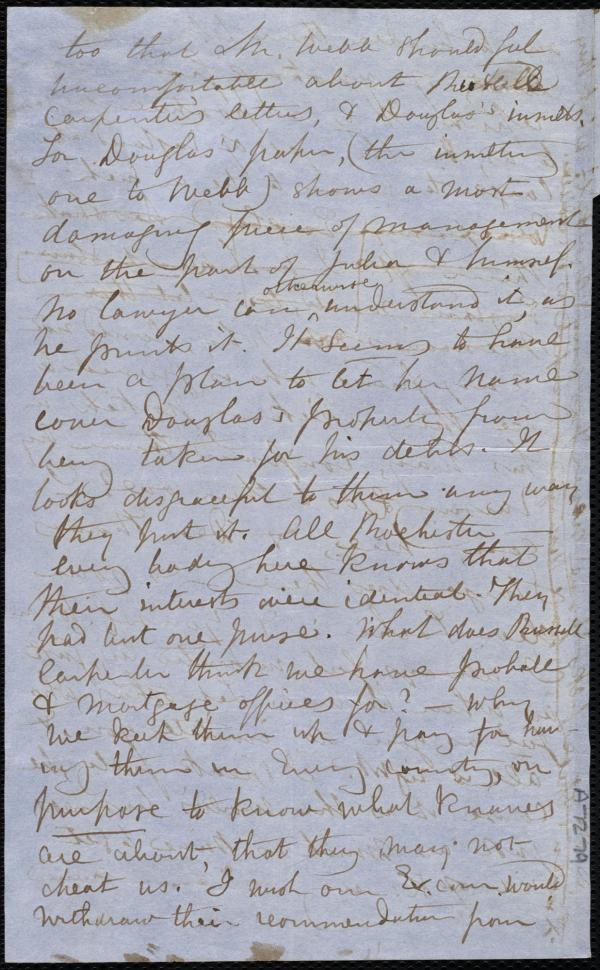 too that Mr. Webb should feel
uncomfortable about Russell
Carpenter's letters, & Douglas's insults.
For Douglas' paper, (the insulting
one to Webb) shows a most
damaging piece of management
on the part of Julia & himself.
No lawyer can otherwise understand it, as
he prints it. It seems to have
been a plan to let her name
cover Douglas's property from
being taken for his debts. It
looks disgraceful to them any way
they put it. All Rochester
every body here knows that
their interests were identical. They
had but one purse. What does Russell
Carpenter think we have probate
& mortgage offices for? — Why
we keep them up & pay for hav-
ing them in every county, on
purpose to know what knaves
are about, that they may not
cheat us. I wish our Ex. Com. would
withdraw their recommendation from
A.7.2.79